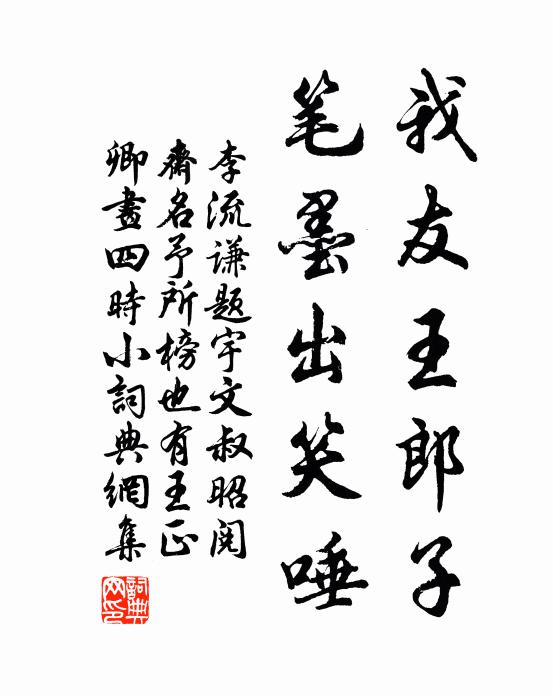 我友王郎子
笔墨出笑唾
李流谦题宇文叔昭阅
斋名予所榜也有王正
卿畫四時小詞典網集
詞典網印